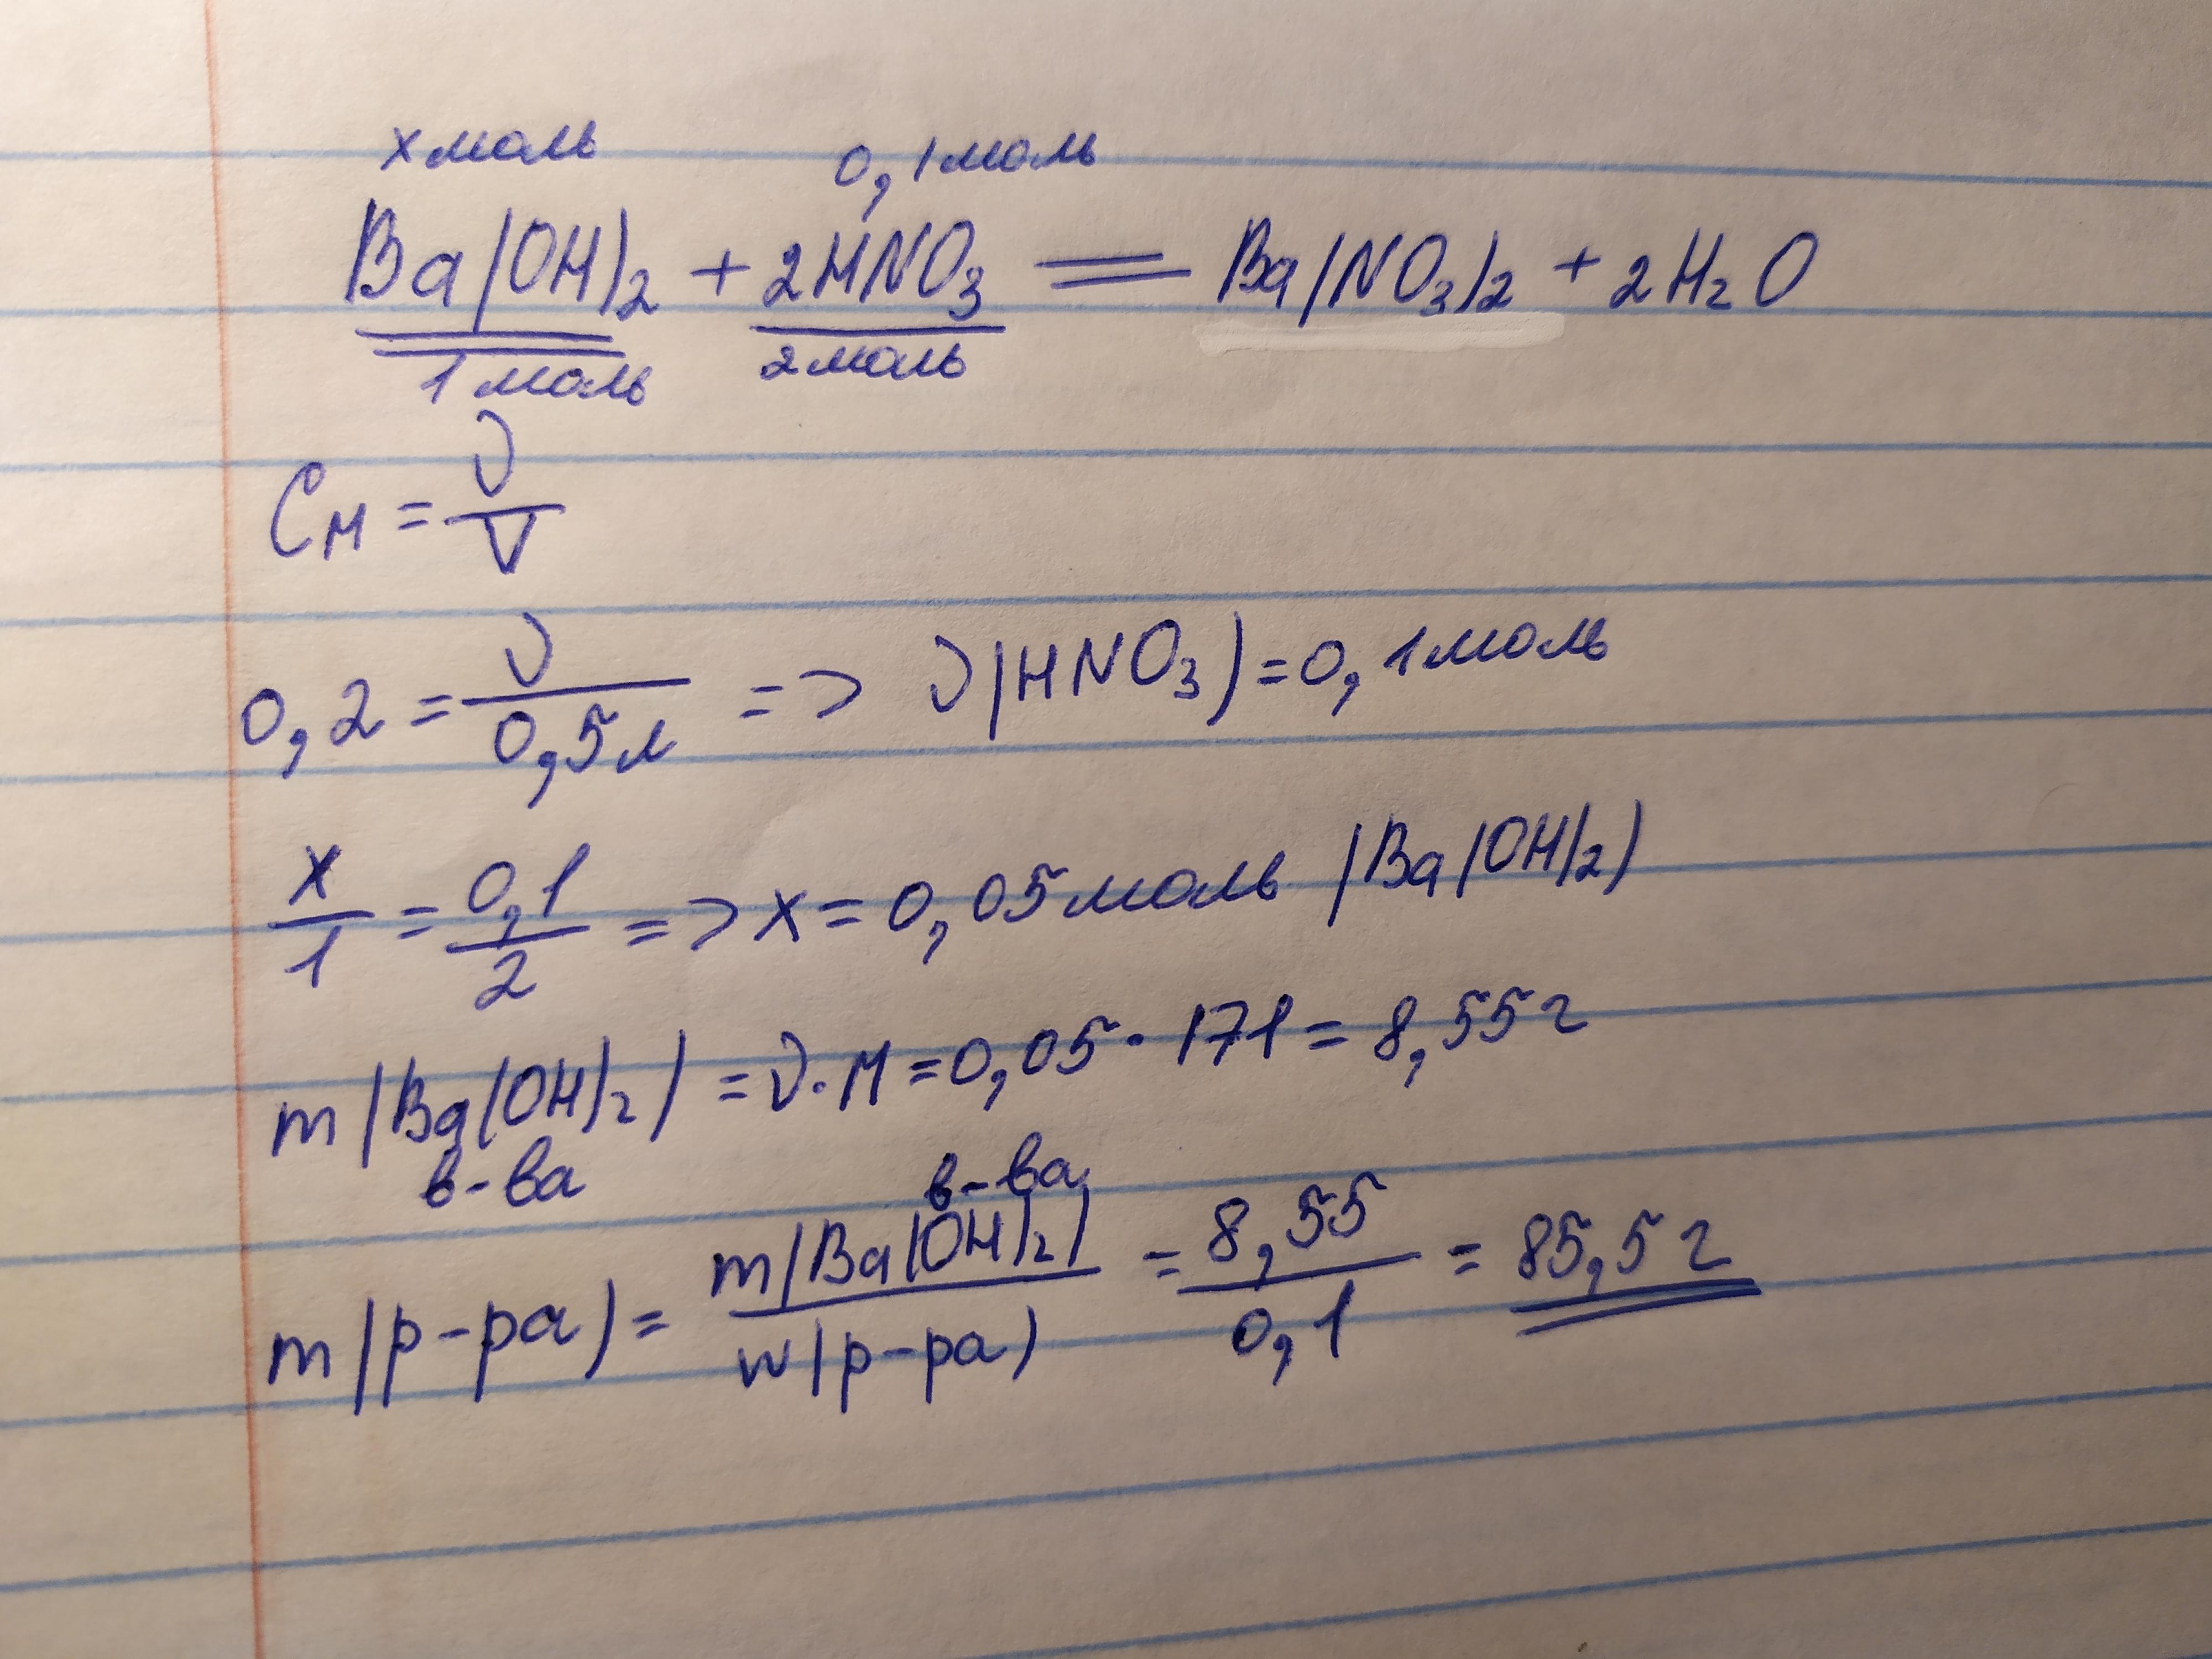 x моль 0,1 моль
Ba(OH)2 + 2HNO3 = Ba(NO3)2 + 2H2O
1 моль 2 моль
CM = ν/V
0,2 = ν/0,5 л => ν(HNO3) = 0,1 моль
x/1 = 0,1/2 => x = 0,05 моль (Ba(OH)2)
m(Ba(OH)2) = ν·M = 0,05·171 = 8,55 г
в-ва
m(р-ра) = m(Ba(OH)2) в-ва/w(р-ра) = 8,55/0,1 = 85,5 г